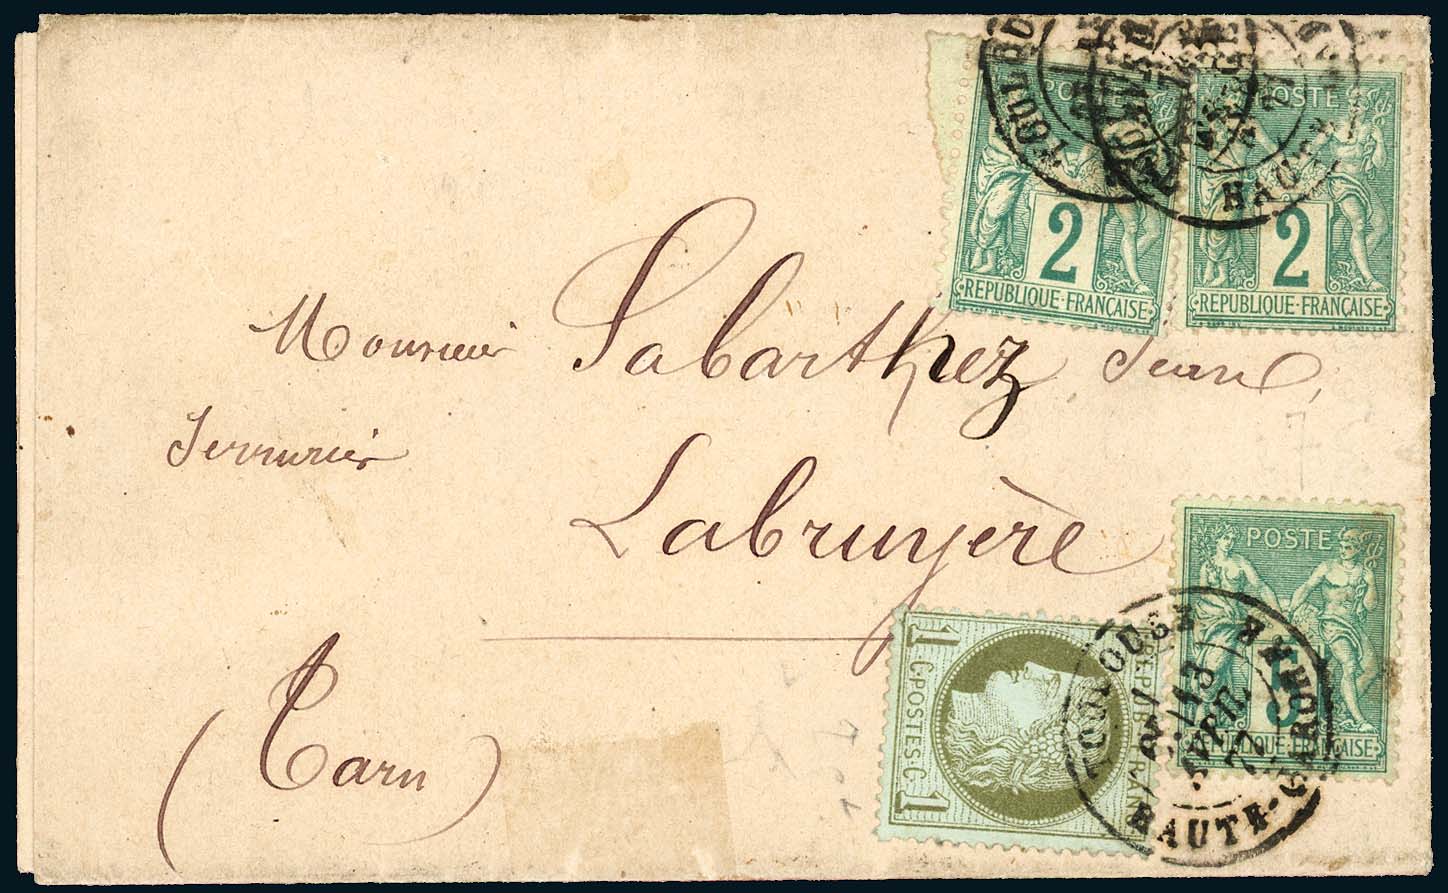 POSTE
2 2
REPUBLIQUE·FRANÇAISE REPUBLIQUE·FRANÇAISE
HAUTE
Monsieur Sabarthez Jean,
Serrurier
Labruyère
(Tarn)
POSTE
5
REPUBLIQUE·FRANÇAISE
1 1
C·POSTES·C
REPUB·FRANC
TOULOUSE
AVRIL
HAUTE-GARONNE